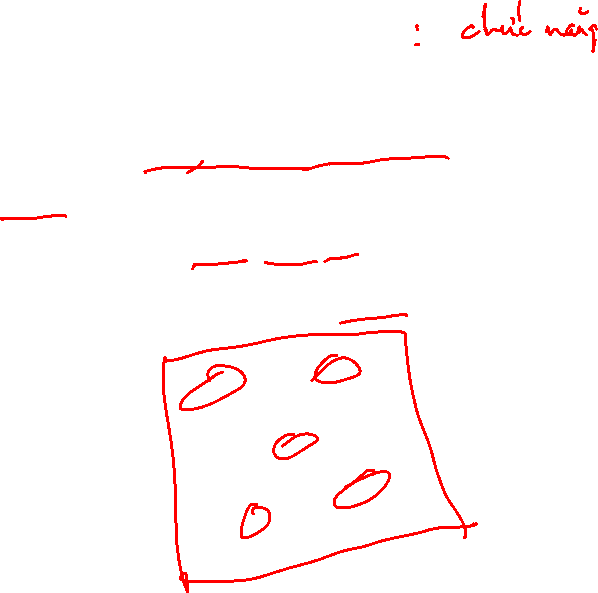 : chức năng